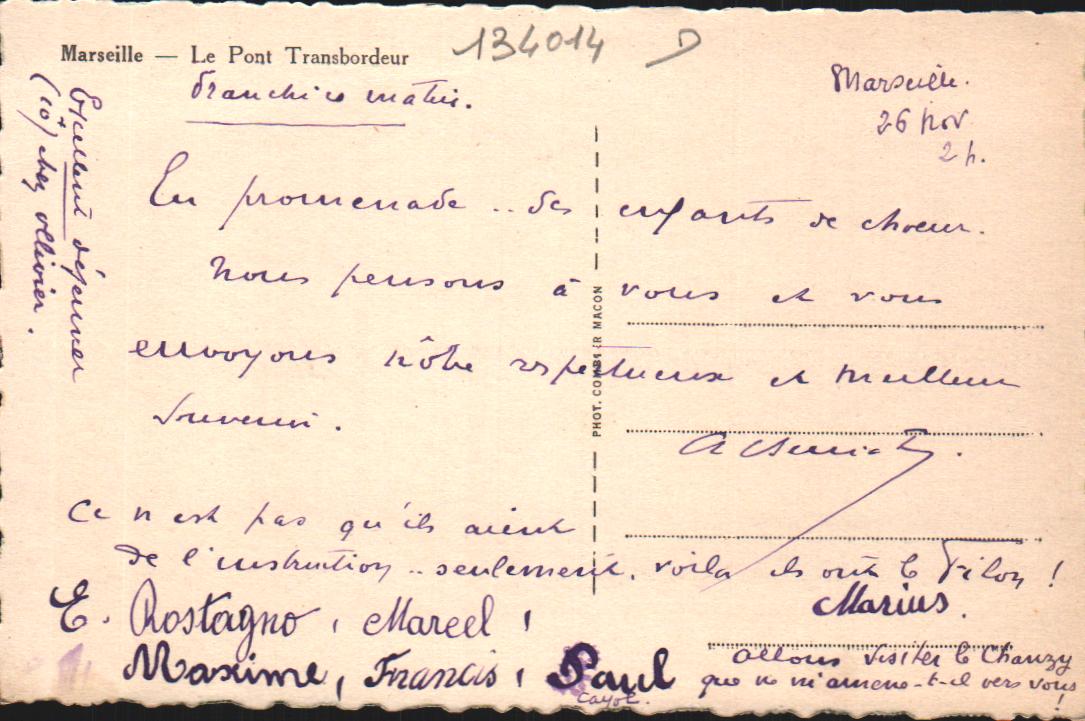 Marseille — Le Pont Transbordeur
134014 D
Marseille.
26 nov
2h.
En promenade .. des enfants de choeur.
Nous pensons à vous et vous
envoyons nôtre respectueux et meilleur
Souvenir.
Ce n'est pas qu'ils aient
de l'instruction .. seulement. voila ils ont le filon !
E. Rostagno, Marcel,
Marius.
Maxime, Francis, Paul
Cayol.
allons visiter le Chanzy
que ne m'amene-t-il vers vous
!
Excellent déjeuner
chez Ollivier.
PHOT. COMBIER MACON